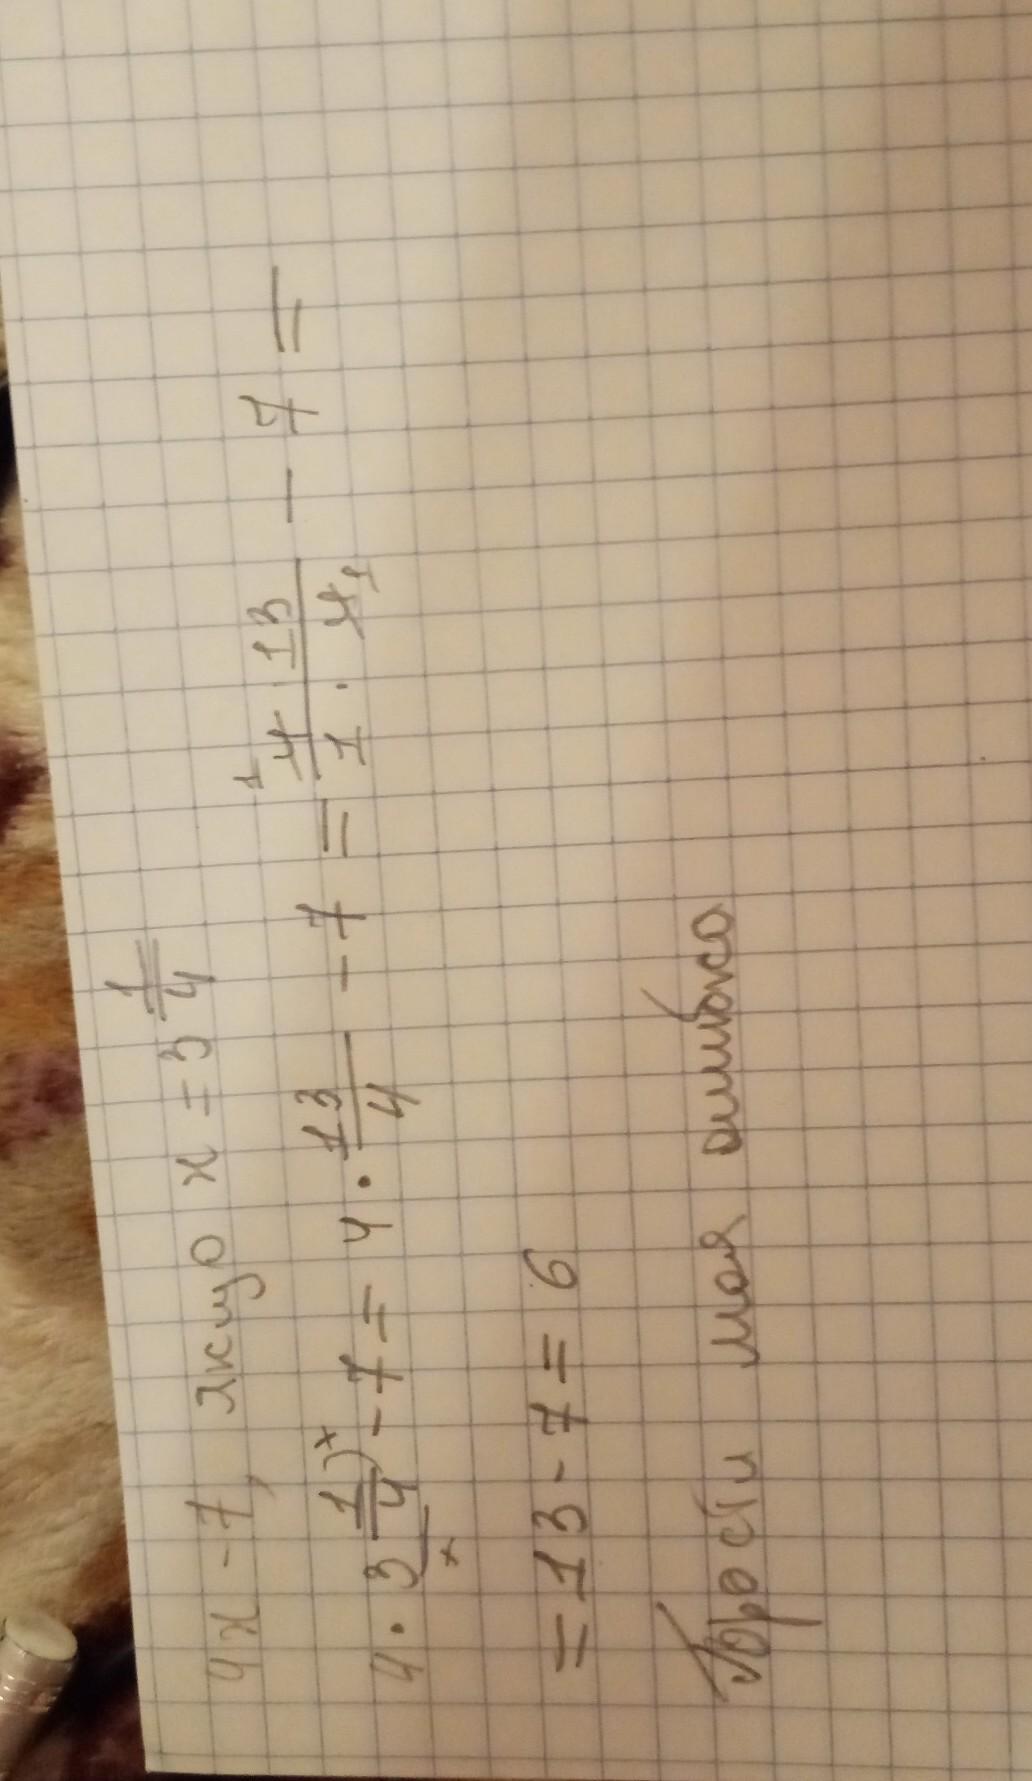 4x - 7, якщо x = 3 1/4
4 · 3 1/4 - 7 = 4 · 13/4 - 7 = (4 · 13)/(1 · 4) - 7 =
= 13 - 7 = 6
Прости моя ошибка